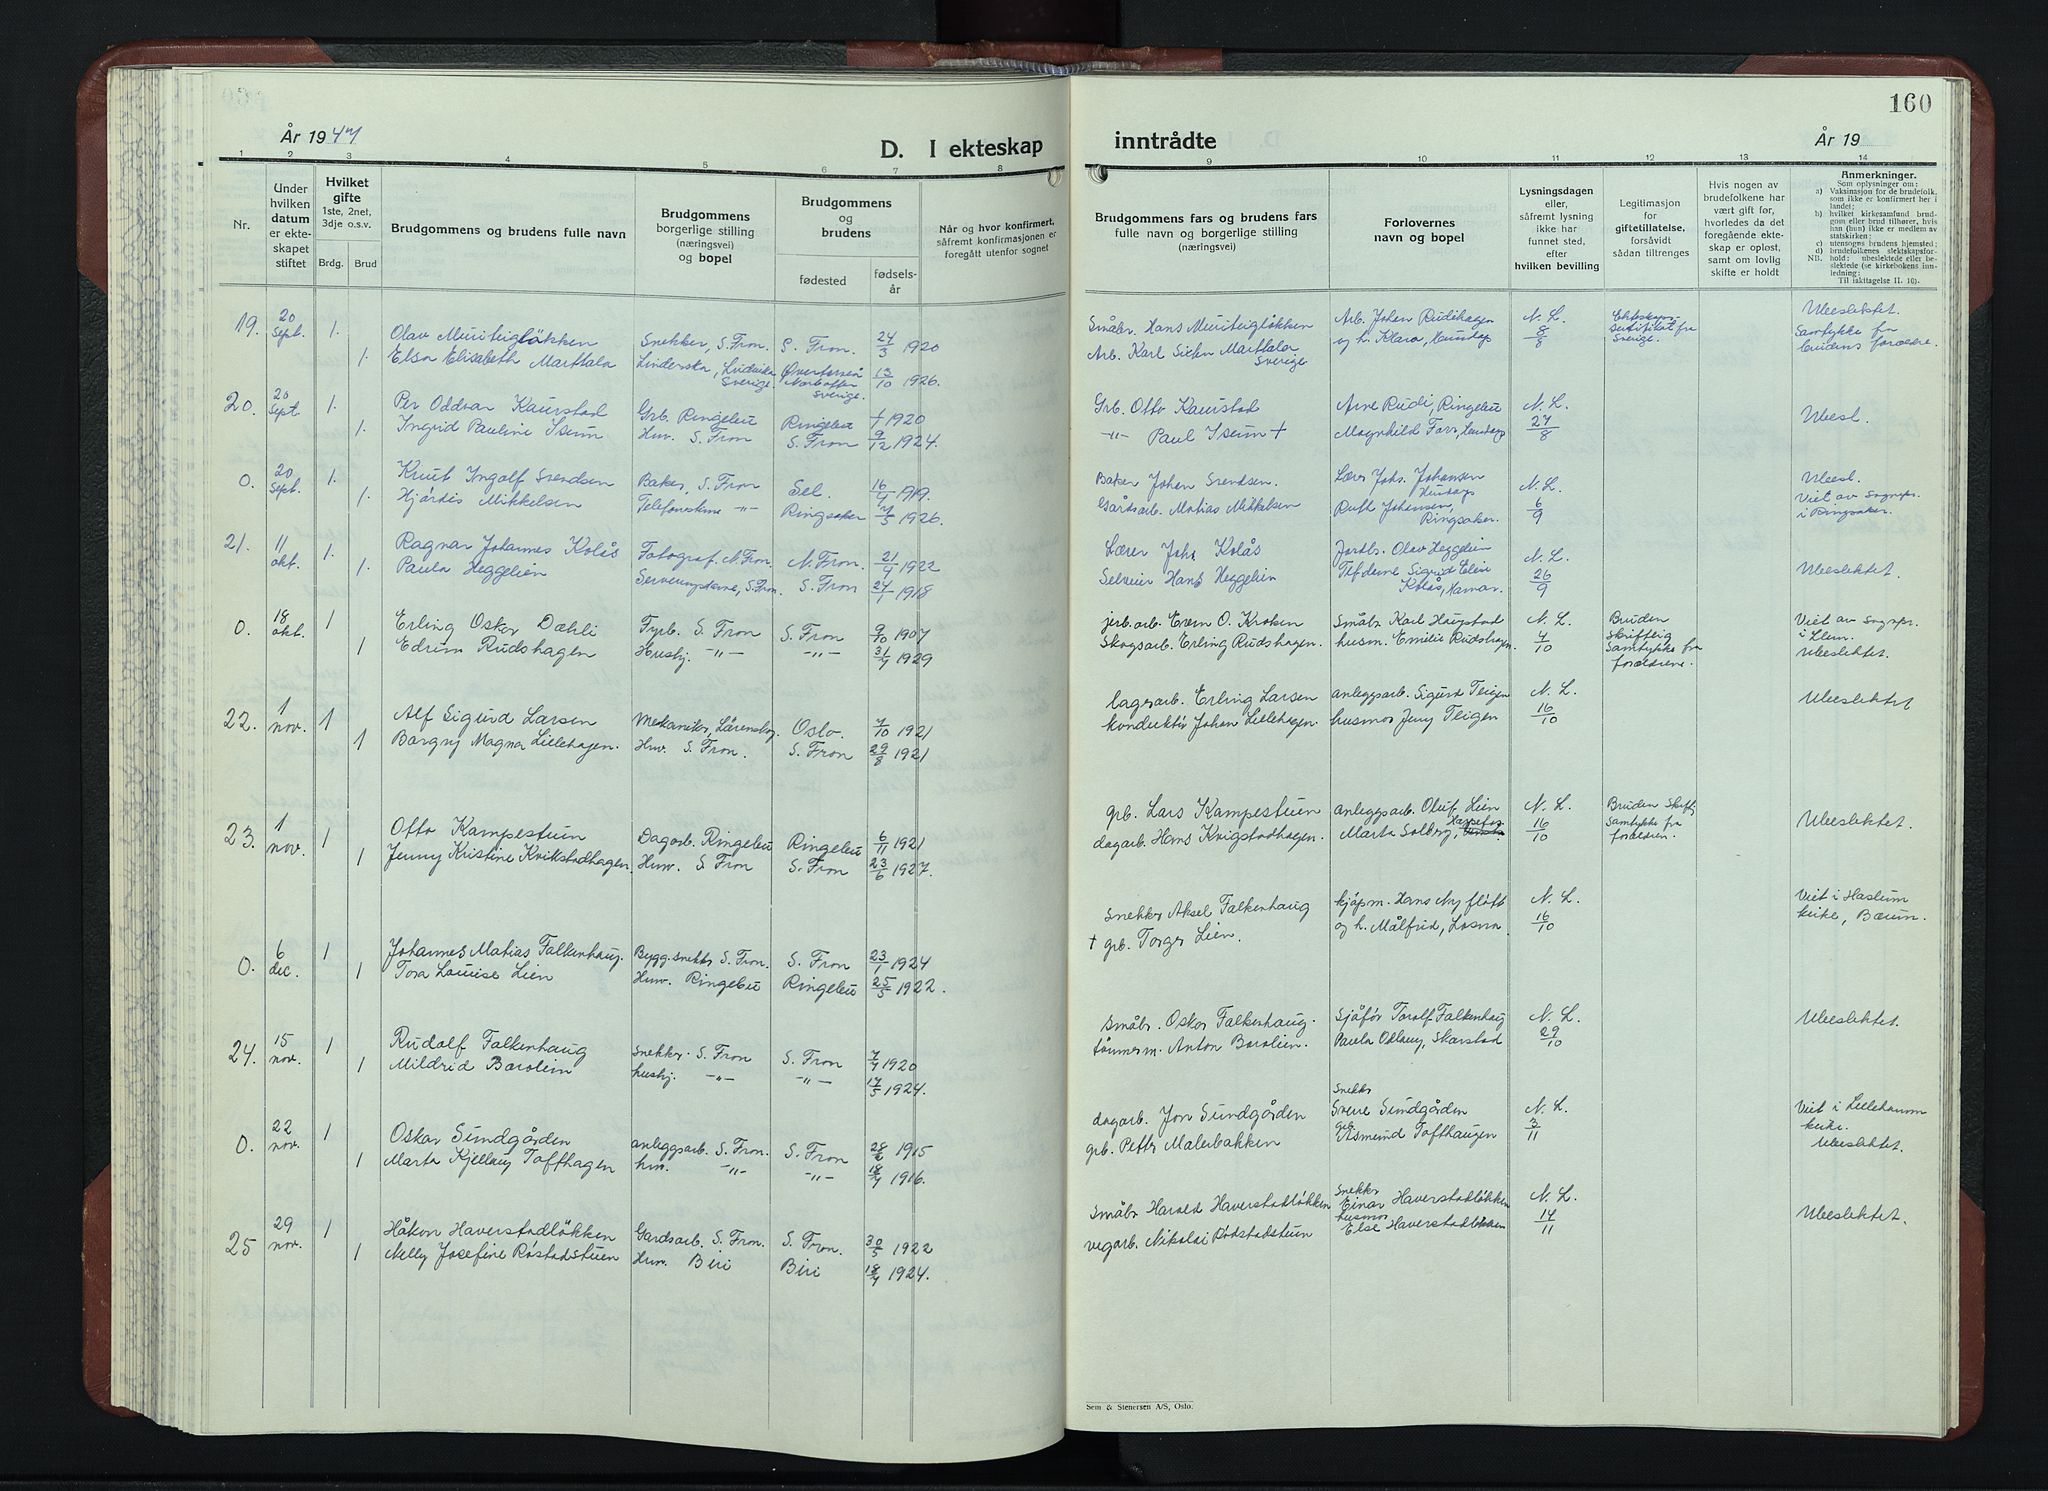 160
År 1947
D. I ekteskap
inntrådte
År 19
1 2 3 4 5 6 7 8 9 10 11 12 13 14
Nr.
Under hvilken datum er ekteskapet stiftet
Hvilket gifte 1ste, 2net, 3dje o.s.v.
Brdg. Brud
Brudgommens og brudens fulle navn
Brudgommens borgerlige stilling (næringsvei) og bopel
Brudgommens og brudens
fødested
fødselsår
Når og hvor konfirmert, såfremt konfirmasjonen er foregått utenfor sognet
Brudgommens fars og brudens fars fulle navn og borgerlige stilling (næringsvei)
Forlovernes navn og bopel
Lysningsdagen eller, såfremt lysning ikke har funnet sted, efter hvilken bevilling
Legitimasjon for giftetillatelse, forsåvidt sådan tiltrenges
Hvis nogen av brudefolkene har vært gift før, hvorledes da det foregående ekteskap er opløst, samt om lovlig skifte er holdt
Anmerkninger.
Som oplysninger om:
a) Vaksinasjon for de brudefolk, som ikke er konfirmert her i landet;
b) hvilket kirkesamfund brudgom eller brud tilhører, hvis han (hun) ikke er medlem av statskirken;
c) utensogns brudens hjemsted;
d) brudefolkenes slektskapsforhold: ubeslektede eller beslektede (se kirkebokens innledning:
NB.
Til iakttagelse II. 10).
19. 20 sept. 1. Olav Muriteigløkken Snekker, S. Fron. S. Fron. 24/3 1920 Småbr. Hans Muriteigløkken Arb. Johan Rudihagen N. L. 8/8 Ubeslektet.
1. Elsa Elisabeth Marttala Ludvika Sverige. Sverige. 13/10 1926. Arb. Karl Marttala Sverige og h. Klara, Hundorp Sverige. Samtykke fra brudens foreldre.
20. 20 sept. 1. Per Oddvar Kaurstad Grb. Ringebu Ringebu 1920 Grb. Otto Kaurstad Arne Rudi, Ringebu N. L. 27/8 Ubesl.
1. Ingrid Pauline Isum Huv. S. Fron S. Fron 9/12 1924. -"- Paul Isum † Magnhild
0. 20 sept. 1. Knut Ingolf Svendsen Baker, S. Fron Sel. 16/4 1919. Baker Johan Svendsen. Lærer Johs. Johansen Hundorp N. L. 6/9 Ubesl.
1. Hjørdis Mikkelsen Telefondame -"- Ringsaker 7/5 1926. Gårdsarb. Matias Mikkelsen Ruth Johansen, Ringsaker. Viet av sognepr. i Ringsaker.
21. 11 okt. 1. Ragnar Johannes Kolås Fotograf. N. Fron. N. Fron. 21/4 1922 Lærer Johs Kolås Jordbr. Olav Heggelien N. L. 26/9 Ubeslektet.
1. Paula Heggelien S. Fron. S. Fron 24/1 1918 Selveier Hans Heggelien Tlf.dame Sigrid Elise Kolås, Hamar.
0. 18 okt. 1 Erling Oskar Dæhli Fyrb. S. Fron S. Fron 9/10 1907 jerb.arb. Even O. Kroken Småbr. Karl Haugstad N. L. 4/10 Bruden skriftlig samtykke fra foreldrene. Viet av sognepr.
1 Edrun Rudshagen Hushj. -"- -"- 31/7 1929 Skogsarb. Erling Rudshagen. husm. Emilie Rudshagen. Ubeslektet.
22. 1 nov. 1 Alf Sigurd Larsen Mekaniker, Lørenskog. Oslo. 7/10 1921 lagerarb. Erling Larsen anleggsarb. Sigurd Teigen N. L. 16/10 Ubeslektet
1 Borgny Magna Lillehagen. Huv. S. Fron. S. Fron 29/8 1921 konduktør Johan Lillehagen. husmor Jeny Teigen
23. 1 nov. 1 Otto Kampestuen Dagarb. Ringebu Ringebu 6/11 1921 grb. Lars Kampestuen anleggsarb. Oluf Lien N. L. 16/10 Bruden skriftl. samtykke fra foreldren. Ubeslektet.
1 Jenny Kristine Kvikstadhagen. Huv. S. Fron S. Fron 23/6 1927. dagarb. Hans Kvigstadhagen. Marta Solberg,
0. 6 dec. 1 Johannes Matias Falkenhaug. Bygg.snekker S. Fron. S. Fron 23/1 1924 Snekker Aksel Falkenhaug kjøpm. Hans Nyfløtt N. L. 16/10 Viet i Haslum kirke, Bærum.
1 Tora Louise Lien Huv. Ringebu Ringebu 25/5 1922. † grb. Torger Lien. og h. Målfrid, Losna
24. 15 nov. 1 Rudolf Falkenhaug snekker. S. Fron S. Fron 7/7 1920 Småbr. Oskar Falkenhaug. Sjåfør Toralf Falkenhaug N. L. 29/10 Ubeslektet.
1 Mildrid Barolien hushj. -"- -"- 17/5 1924. tømmerm. Anton Barolien. Paula Odlaug, Skarstad
0. 22 nov. 1 Oskar Sundgården anleggsarb. S. Fron. S. Fron 1915 dagarb. Jon Sundgården Snekker Svein Sundgården N. L. 3/11 Viet i Lillehammer kirke.
1 Marta Kjellaug Tofthagen huv. -"- -"- 18/7 1916. grb. Petter Malerbakken grb. Asmund Tofthaugen Ubeslektet.
25 29 nov. 1 Håkon Haverstadløkken Gardsarb. S. Fron. S. Fron. 30/5 1922 Småbr Harald Haverstadløkken Snekker Einar Haverstadløkken N. L. 14/11 Ubeslektet.
1 Nelly Josefine Røstadstuen Huv. Biri Biri 18/7 1924. vegarb. Nikolai Rødstadstuen husmor Else Haverstadløkken
Sem & Stenersen A/S, Oslo.